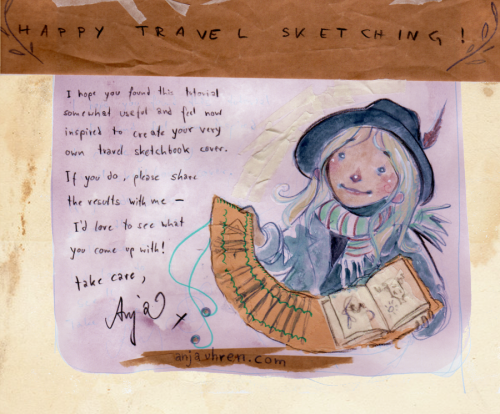 HAPPY TRAVEL SKETCHING!
I hope you found this tutorial
somewhat useful and feel now
inspired to create your very
own travel sketchbook cover.
If you do, please share
the results with me –
I'd love to see what
you come up with!
take care,
Anja x
anjauhren.com